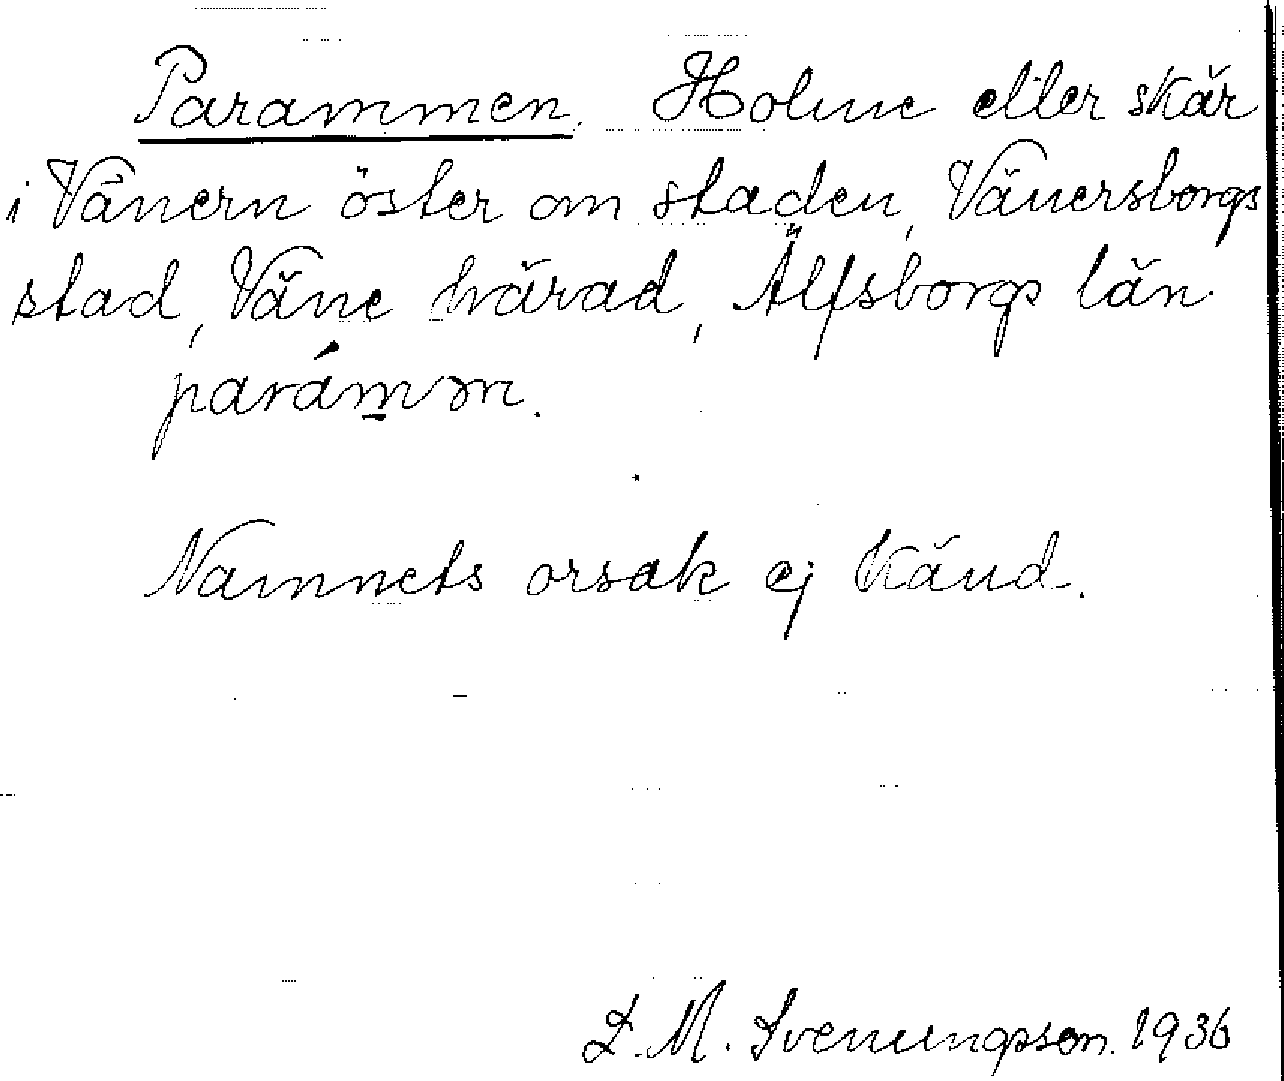 Parammen. Holme eller skär
i Vänern öster om staden, Vänersborgs
stad, Väne härad, Älfsborgs län.
parámən.
Namnets orsak ej känd.
L. M. Svenungsson. 1936